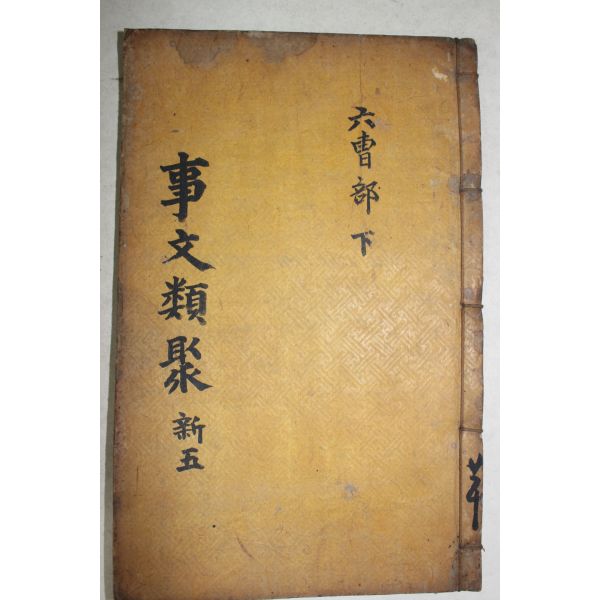 六曹部 下
事文類聚 新五